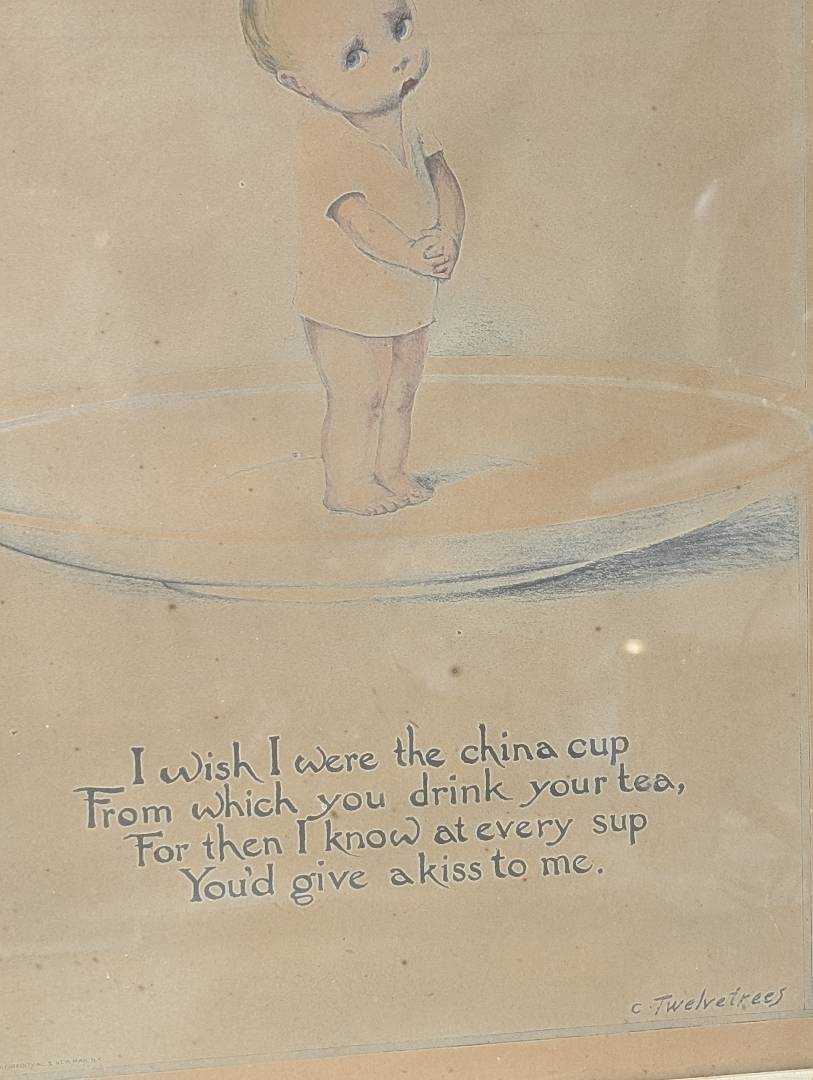 I wish I were the china cup
From which you drink your tea,
For then I know at every sup
You'd give a kiss to me.
C. Twelvetrees